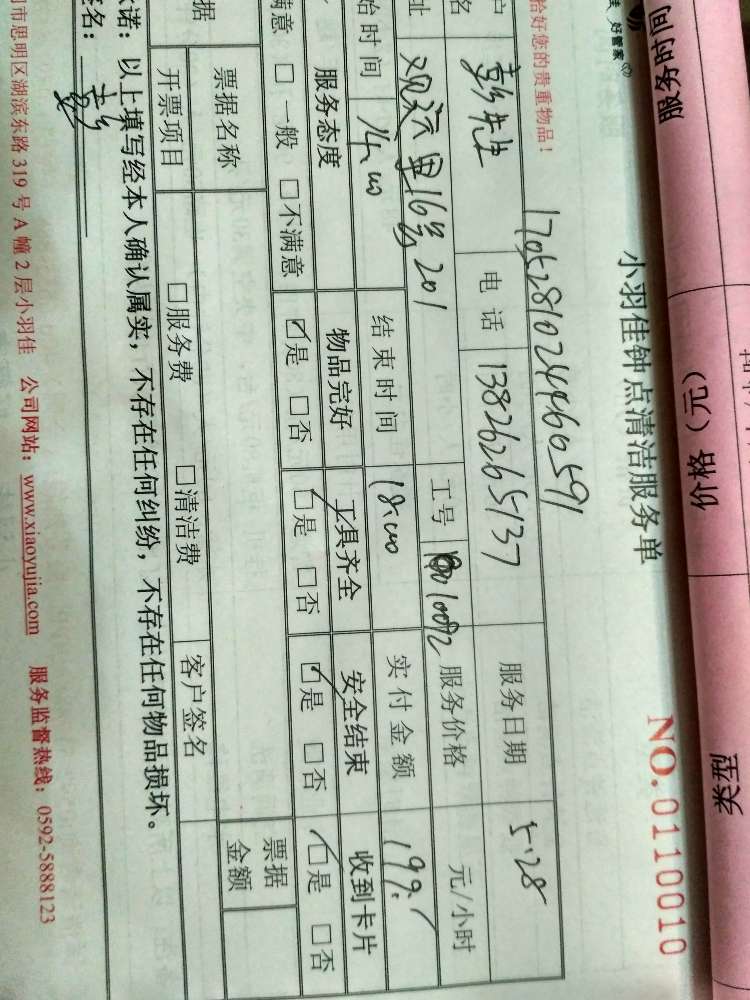 服务时间
价格（元）
类型
佳 好管家
小羽佳钟点清洁服务单
NO.01110010
恰好您的贵重物品！
17052810244460591
户名 彭先生 电话 13862265137 服务日期 5.28
址 观远里16号201 工号 001002 服务价格 元/小时
始时间 14:00 结束时间 18:00 实付金额 199.
服务态度 物品完好 工具齐全 安全结束 收到卡片
满意 □ 一般 □不满意 ☑是 □否 ☑是 □否 ☑是 □否 ☑是 □否
据 票据名称 票据金额
开票项目 □服务费 □清洁费 客户签名
诺：以上填写经本人确认属实，不存在任何纠纷，不存在任何物品损坏。
签名： 彭
市思明区湖滨东路319号A幢2层小羽佳 公司网站：www.xiaoyujia.com 服务监督热线：0592-5888123